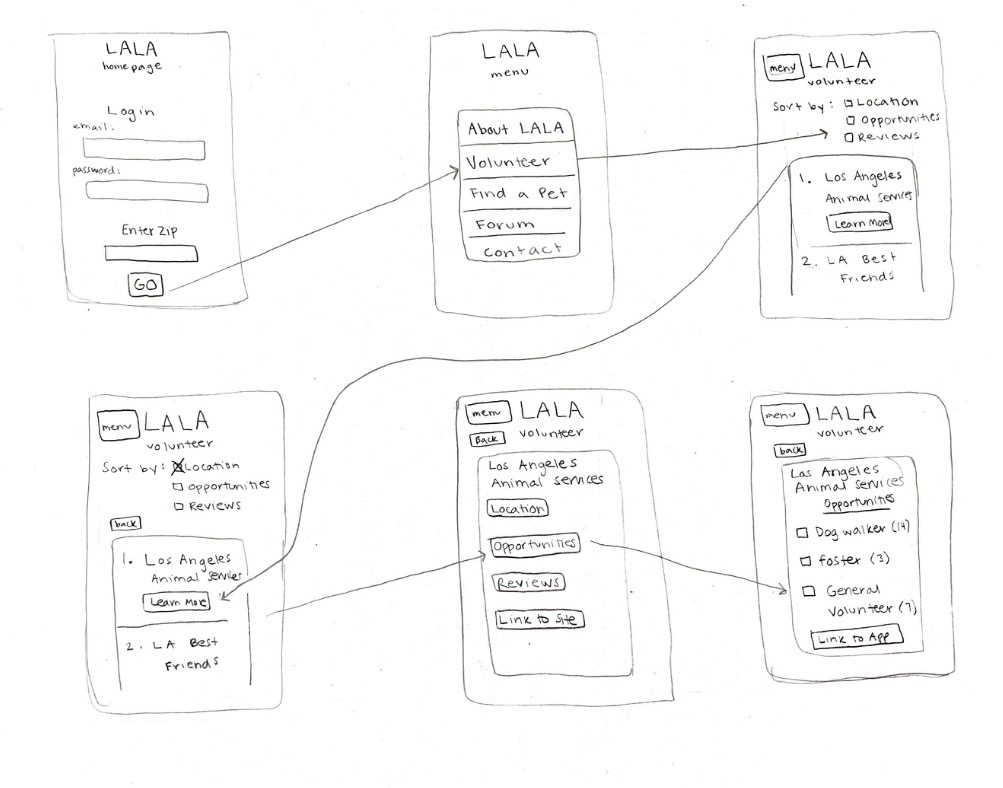 LALA
homepage
Login
email:
password:
Enter Zip
GO
LALA
menu
About LALA
Volunteer
Find a Pet
Forum
Contact
menu LALA
volunteer
Sort by: Location
Opportunities
Reviews
1. Los Angeles
Animal Services
Learn More
2. LA Best
Friends
menu LALA
volunteer
Sort by: Location
Opportunities
Reviews
back
1. Los Angeles
Animal Services
Learn More
2. LA Best
Friends
menu LALA
Back volunteer
Los Angeles
Animal Services
Location
Opportunities
Reviews
Link to Site
menu LALA
volunteer
back
Los Angeles
Animal Services
Opportunities
Dog walker (14)
foster (3)
General
Volunteer (7)
Link to App